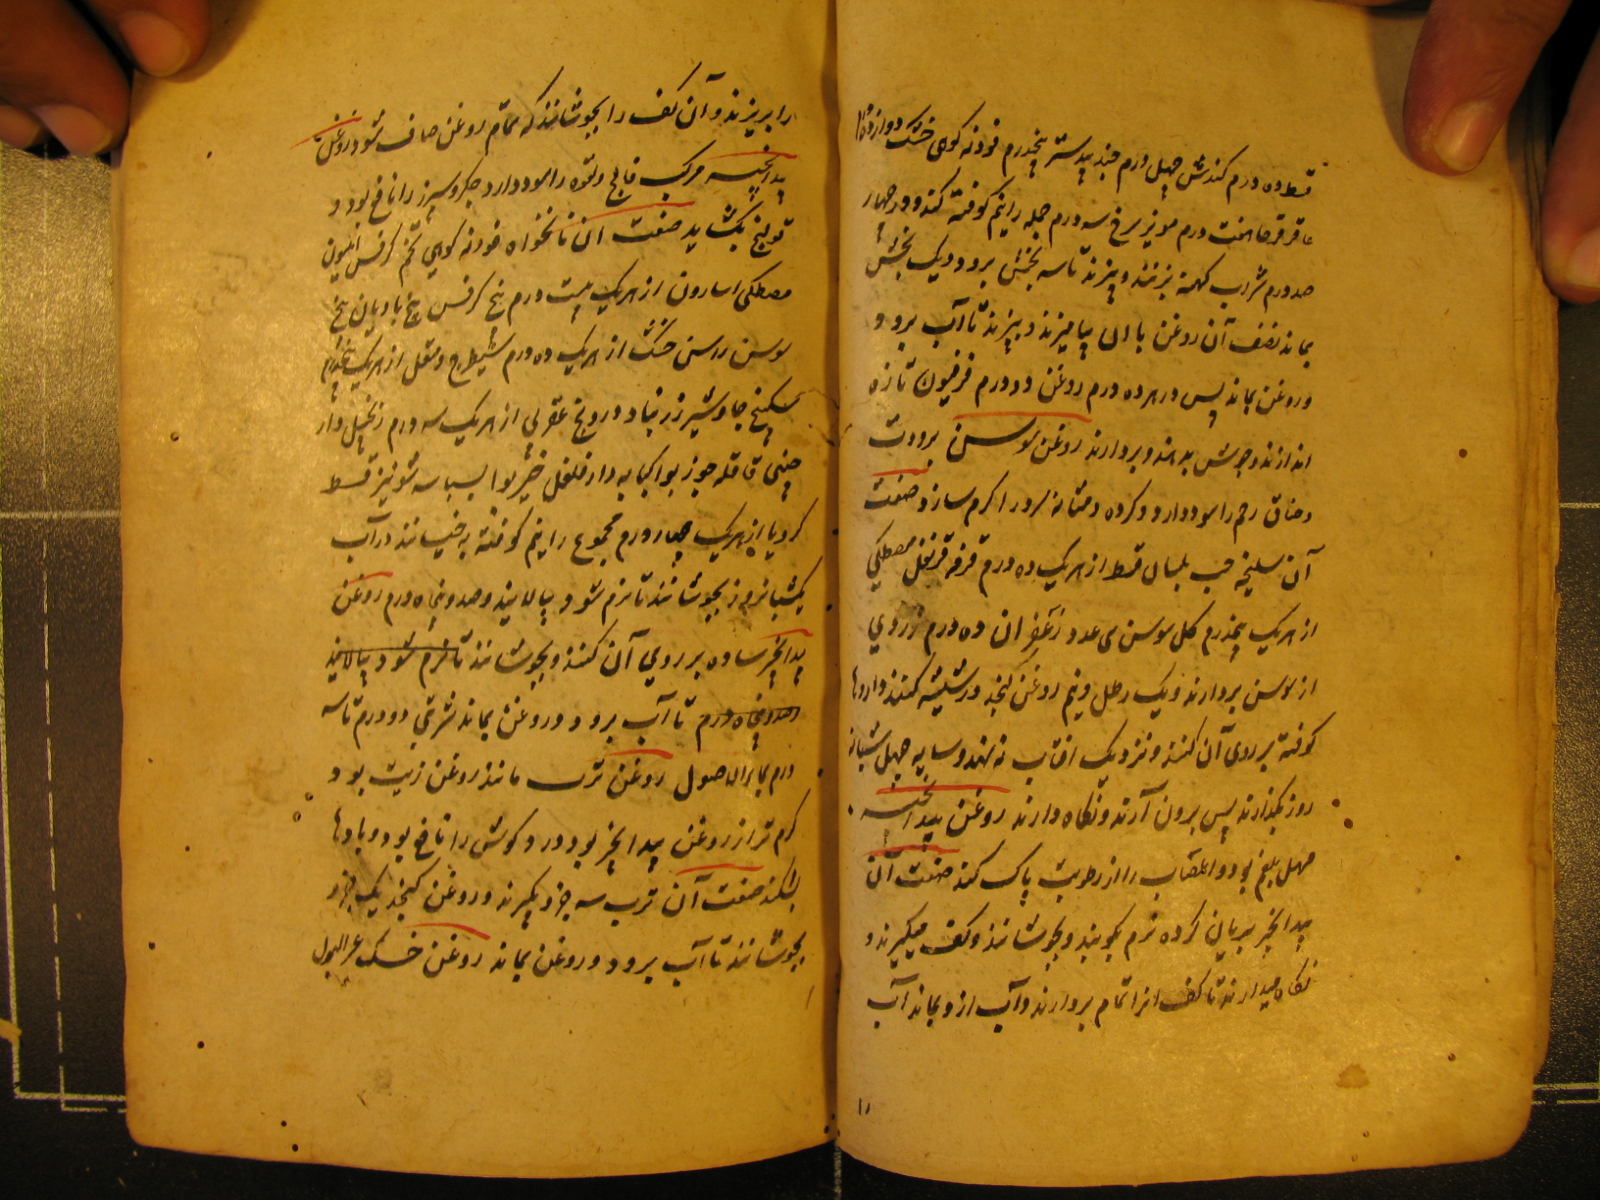 قسط ده درم کندش چهل درم جند بیدستر پنجدرم فودنه کوهی خشک دوازده درم
عاقرقرحا هفت درم مویز سرخ سه درم جمله را نیم کوفته کنند و در چهار
صد درم شراب کهنه بزنند و بپزند تا سه بخش برود و یک بخش
بماند نصف آن روغن با آن بیامیزند و بپزند تا آب برود و
روغن بماند پس در هر ده درم روغن دو درم فرفیون تازه
اندازند و جوش بدهند و بردارند روغن سوسن برودت
و خناق رحم را سود دارد و کرده و مثانه سرد را کرم سازد صنعت
آن سلیخه حب بلسان قسط از هریک ده درم قرفه قرنفل مصطکی
از هریک پنجدرم کل سوسن سی عدد زعفران ده درم زردی
از سوسن بردارند و یک رطل و نیم روغن کنجد در شیشه کنند و داروها
کوفته بر روی آن کنند و نزدیک افتاب نهند و سایه چهل شبانه
روز بکذارند پس برون آرند و نکاه دارند روغن بیدانجیر
مسهل بلغم بود و اعصاب را از رطوبت پاک کند صنعت آن
بیدانجیر بریانی کرده نرم بکوبند و بجوشانند و کف میکیرند و
نکاه میدارند تا کف انرا تمام بردارند و آب ازو بماند آب
را بریزند و آن کف را بجوشانند که تمام روغن صاف شود روغن
بیدانجیر مرکب فالج و لقوه را سود دارد و جکر و سپرز را نافع بود و
قولنج بکشاید صنعت آن نانخواه فودنه کوهی تخم کرفس انیسون
مصطکی اسارون از هریک بیست درم بیخ کرفس بیخ بادیان بیخ
سوسن راسن خشک از هریک ده درم شیطرج و مقل از هریک پنجدرم
سکبینج جاوشیر زرنباد درونج عقربی از هریک سه درم زنجبیل دار
چینی قاقله جوز بوا کبابه دارفلفل خیربوا بسباسه شونیز قسط
کرویا از هریک چهار درم مجموع را نیم کوفته بخیسانند در آب
یکشبانروز بجوشانند تا نرم شود بپالایند و صد و پنجاه درم روغن
بیدانجیر ساده بر روی آن کنند و بجوشانند تا نرم شود بپالایند
و صد و پنجاه درم تا آب برود و روغن بماند شربتی دو درم تا سه
درم بماءالاصول روغن ترب مانند روغن زیت بود و
کرم تر از روغن بیدانجیر بود درد کوش را نافع بود و بادها
بشکند صنعت آن ترب سه جزو بکیرند و روغن کنجد یک جزو
بجوشانند تا آب برود و روغن بماند روغن خسک عسرالبول